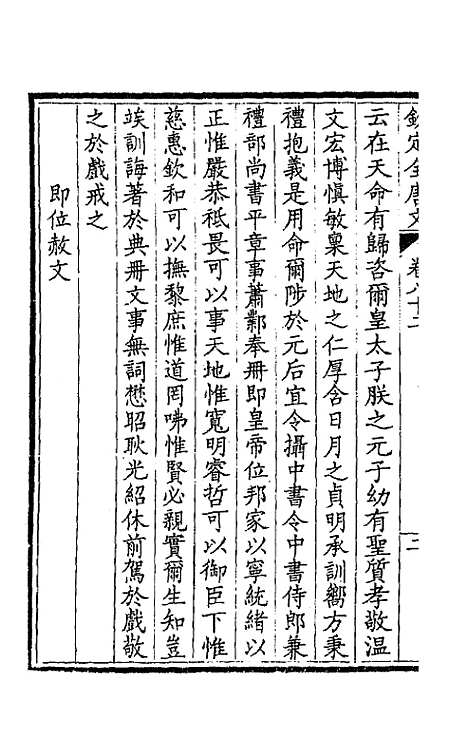 欽定全唐文 卷八十二 二
云在天命有歸咨爾皇太子朕之元子幼有聖質孝敬溫
文宏博愼敏稟天地之仁厚含日月之貞明承訓嚮方秉
禮抱義是用命爾陟於元后宜令攝中書令中書侍郎兼
禮部尚書平章事蕭鄴奉冊即皇帝位邦家以寧統緒以
正惟嚴恭祗畏可以事天地惟寬明睿哲可以御臣下惟
慈惠欽和可以撫黎庶惟道罔咈惟賢必親實爾生知豈
竢訓誨著於典冊文事無詞懋昭耿光紹休前駕於戲敬
之於戲戒之
即位赦文